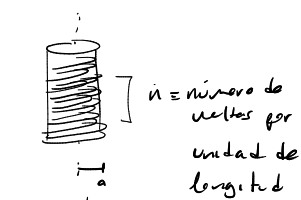 n ≡ número de
vueltas por
unidad de
longitud
a